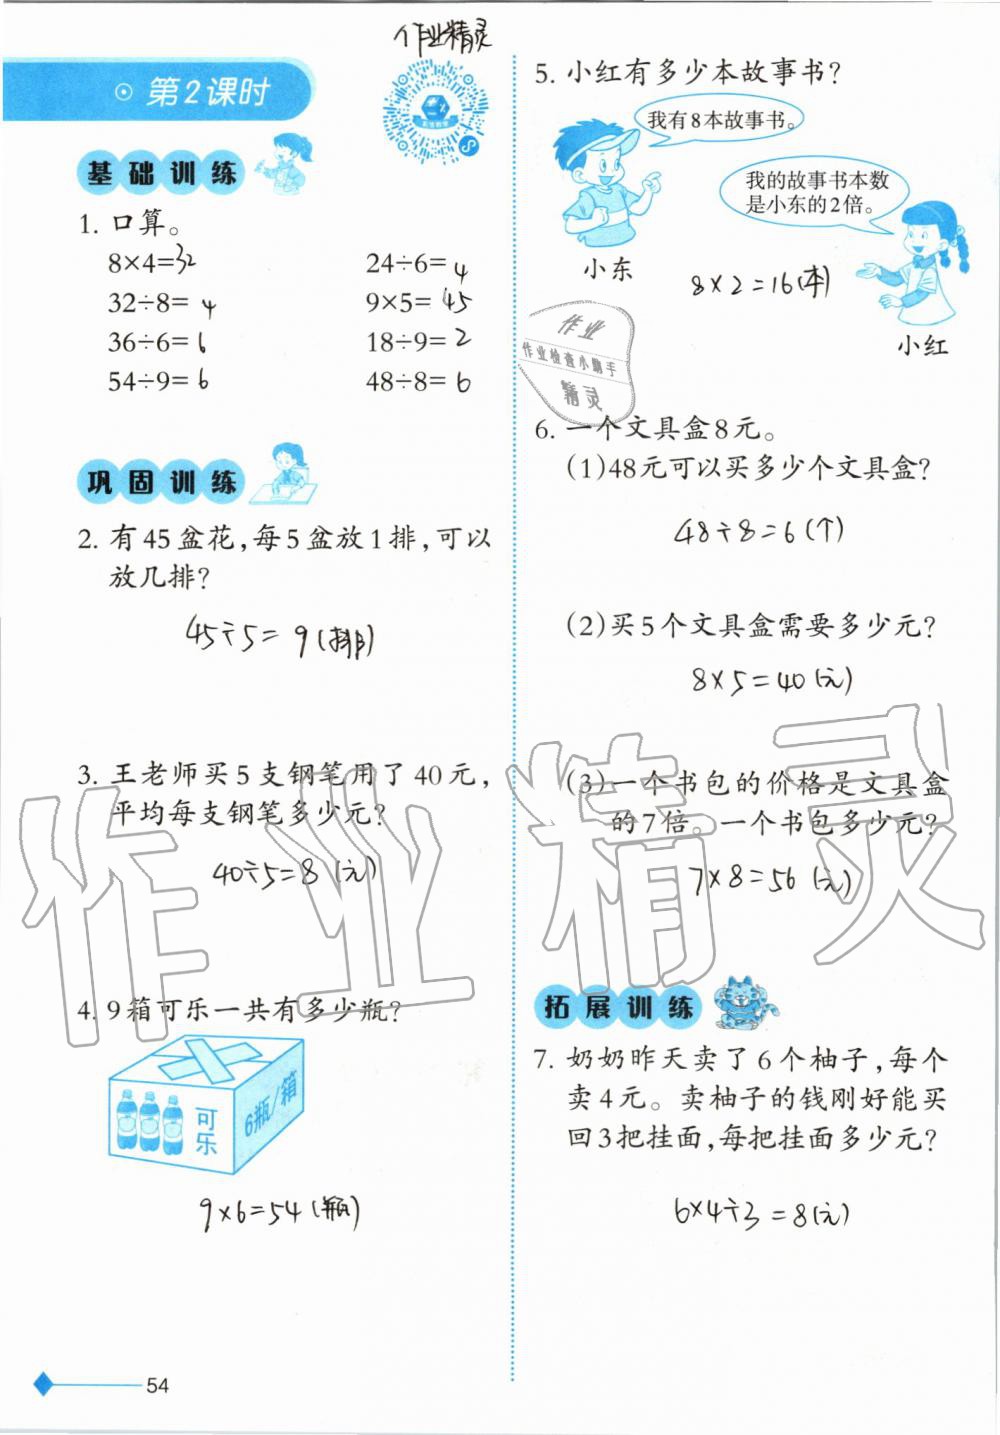 作业精灵
第2课时
基础训练
1. 口算。
8×4=32 24÷6=4
32÷8=4 9×5=45
36÷6=6 18÷9=2
54÷9=6 48÷8=6
巩固训练
2. 有45盆花,每5盆放1排,可以
放几排?
45÷5=9(排)
3. 王老师买5支钢笔用了40元,
平均每支钢笔多少元?
40÷5=8(元)
4. 9箱可乐一共有多少瓶?
可乐
6瓶/箱
9×6=54(瓶)
54
5. 小红有多少本故事书?
我有8本故事书。
我的故事书本数
是小东的2倍。
小东
8×2=16(本)
小红
作业
作业检查小助手
精灵
6. 一个文具盒8元。
(1)48元可以买多少个文具盒?
48÷8=6(个)
(2)买5个文具盒需要多少元?
8×5=40(元)
(3)一个书包的价格是文具盒
的7倍。一个书包多少元?
7×8=56(元)
拓展训练
7. 奶奶昨天卖了6个柚子,每个
卖4元。卖柚子的钱刚好能买
回3把挂面,每把挂面多少元?
6×4÷3=8(元)
作业精灵